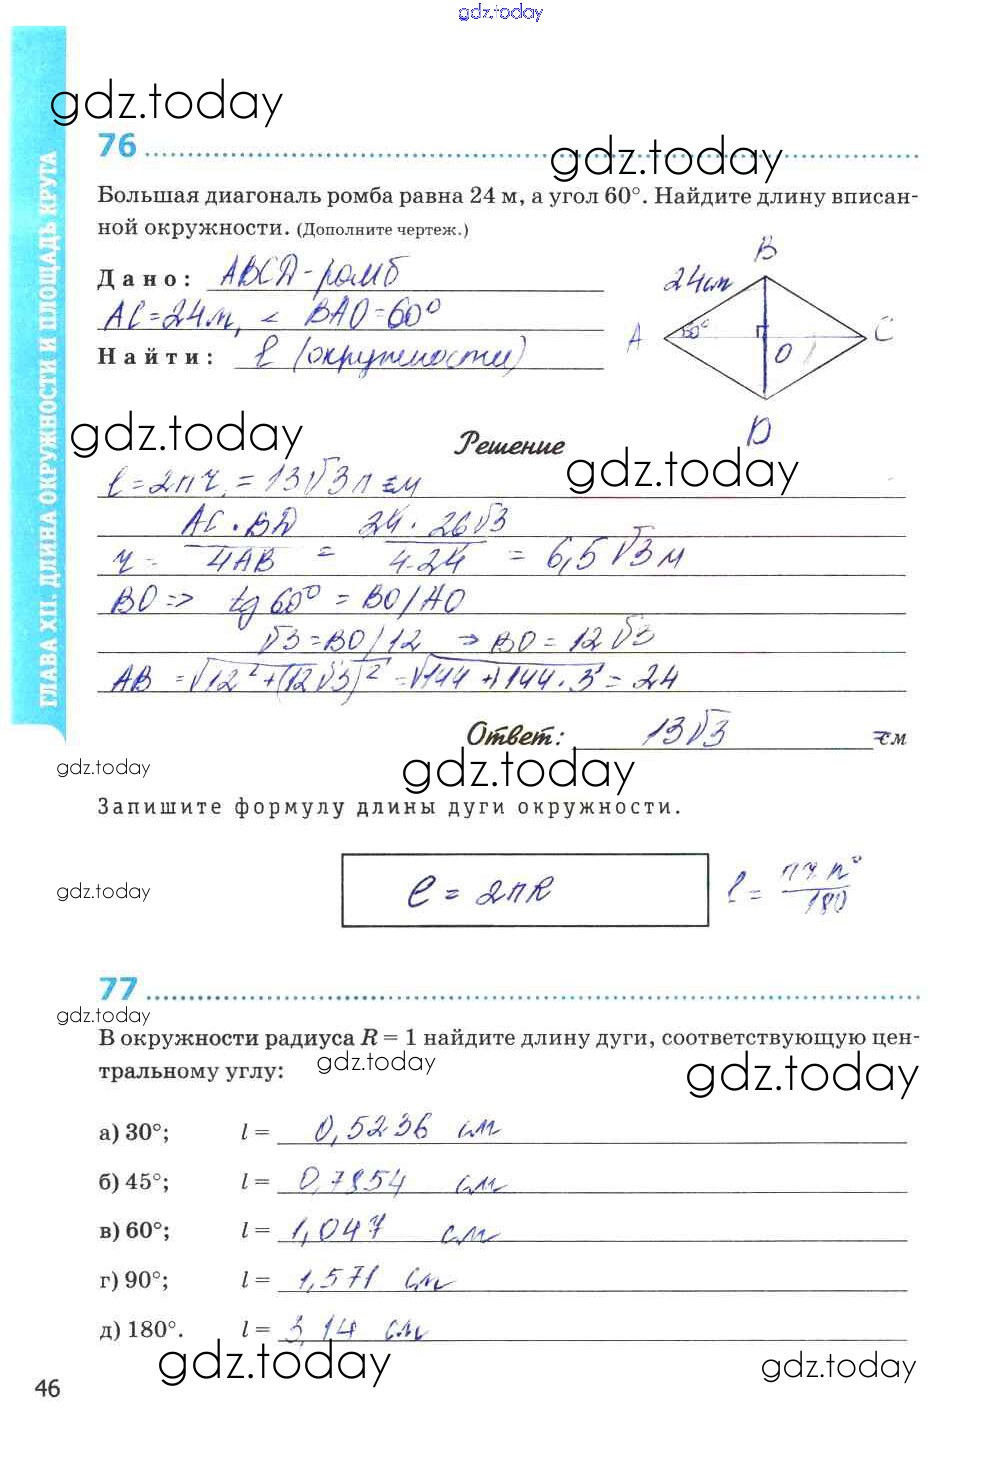 gdz.today
gdz.today
76
gdz.today
Большая диагональ ромба равна 24 м, а угол 60°. Найдите длину вписан-
ной окружности. (Дополните чертеж.)
Дано: ABCD - ромб
AC = 24 м, < BAO = 60°
Найти: l (окружности)
B
24 см
A
60°
O
C
D
gdz.today
Решение
gdz.today
l = 2πr = 13√3 π см
r = AC · BD / 4AB = 24 · 26√3 / 4 · 24 = 6,5√3 м
BO => tg 60° = BO/AO
√3 = BO/12 => BO = 12√3
AB = √12² + (12√3)² = √144 + 144 · 3 = 24
Ответ: 13√3 см
gdz.today
gdz.today
Запишите формулу длины дуги окружности.
gdz.today
l = 2πR
l = πr n° / 180
77
gdz.today
В окружности радиуса R = 1 найдите длину дуги, соответствующую цен-
тральному углу:
gdz.today
gdz.today
а) 30°; l = 0,5236 см
б) 45°; l = 0,7854 см
в) 60°; l = 1,047 см
г) 90°; l = 1,571 см
д) 180°. l = 3,14 см
gdz.today
gdz.today
46
ГЛАВА XII. ДЛИНА ОКРУЖНОСТИ И ПЛОЩАДЬ КРУГА